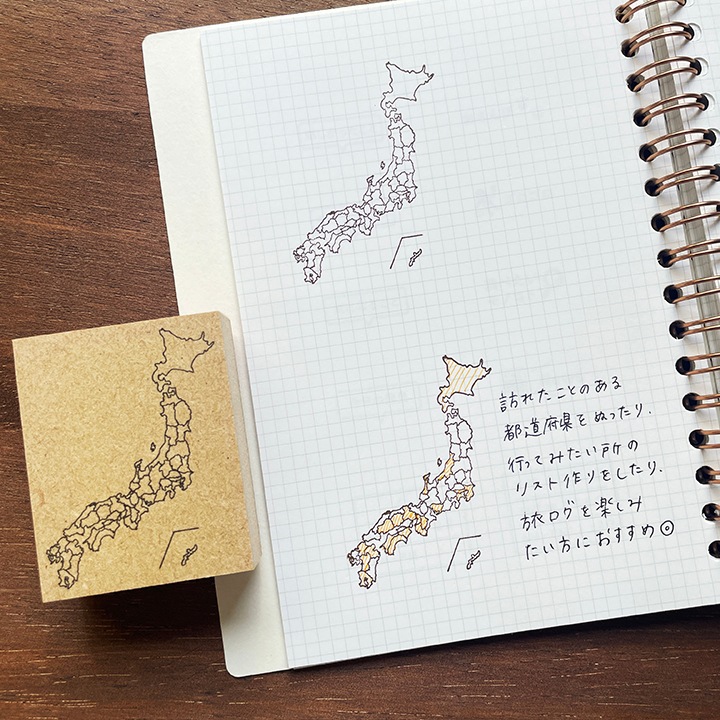 訪れたことのある
都道府県をぬったり.
行ってみたい所の
リスト作りをしたり.
旅ログを楽しみ
たい方におすすめ◎